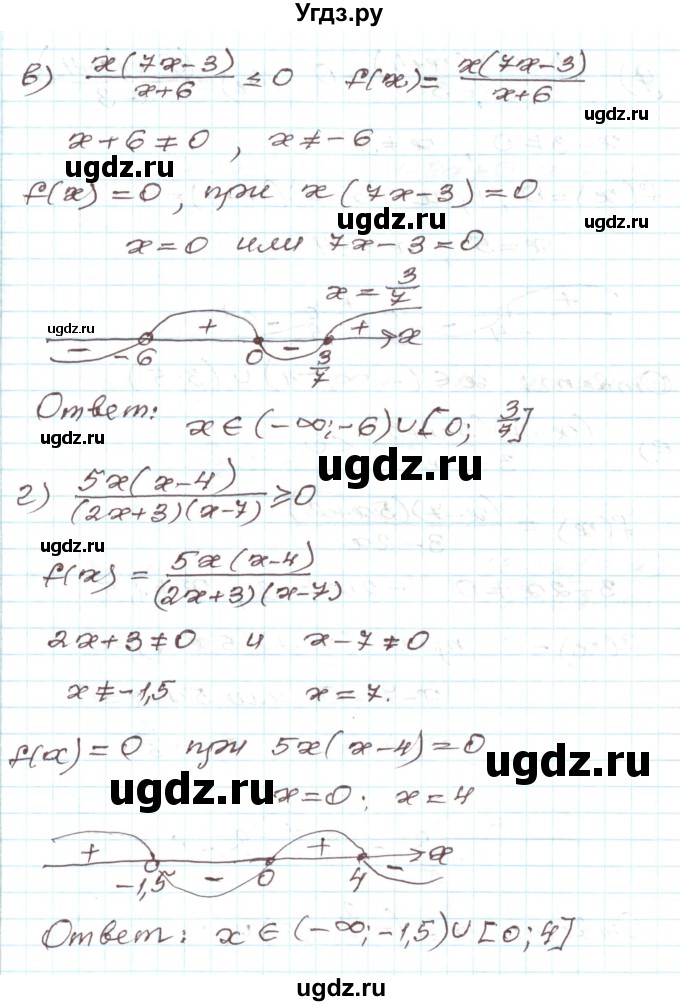 Угдз.ру
в) x(7x-3)/(x+6) ≤ 0   f(x)= x(7x-3)/(x+6)
ugdz.ru
x+6≠0, x≠-6
ugdz.ru
f(x)=0, при x(7x-3)=0
ugdz.ru
x=0 или 7x-3=0
x= 3/7
ugdz.ru
+ + x
- -6 0 - 3/7
Ответ: x∈(-∞;-6)∪[0; 3/7]
ugdz.ru
ugdz.ru
г) 5x(x-4)/((2x+3)(x-7)) ≥0
ugdz.ru
f(x) = 5x(x-4)/((2x+3)(x-7))
ugdz.ru
2x+3≠0 и x-7≠0
ugdz.ru
x≠-1,5   x=7.
f(x)=0 при 5x(x-4)=0
ugdz.ru
ugdz.ru
x=0; x=4
+ + x
-1,5 - 0 4 -
Ответ: x∈(-∞;-1,5)∪[0;4]
ugdz.ru
ugdz.ru